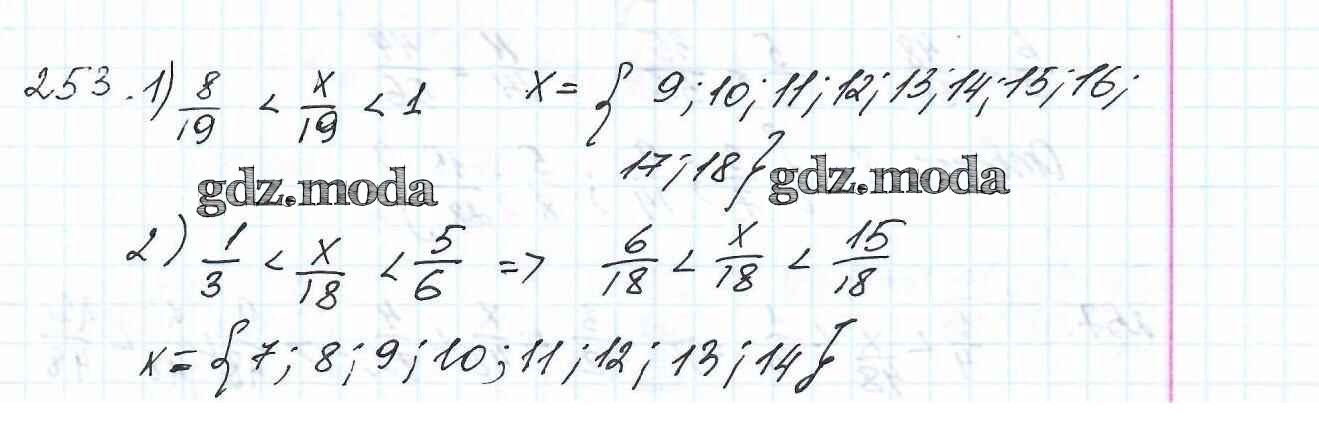 253. 1) 8/19 < x/19 < 1 x = { 9; 10; 11; 12; 13; 14; 15; 16;
17; 18}
gdz.moda gdz.moda
2) 1/3 < x/18 < 5/6 => 6/18 < x/18 < 15/18
x = {7; 8; 9; 10; 11; 12; 13; 14}